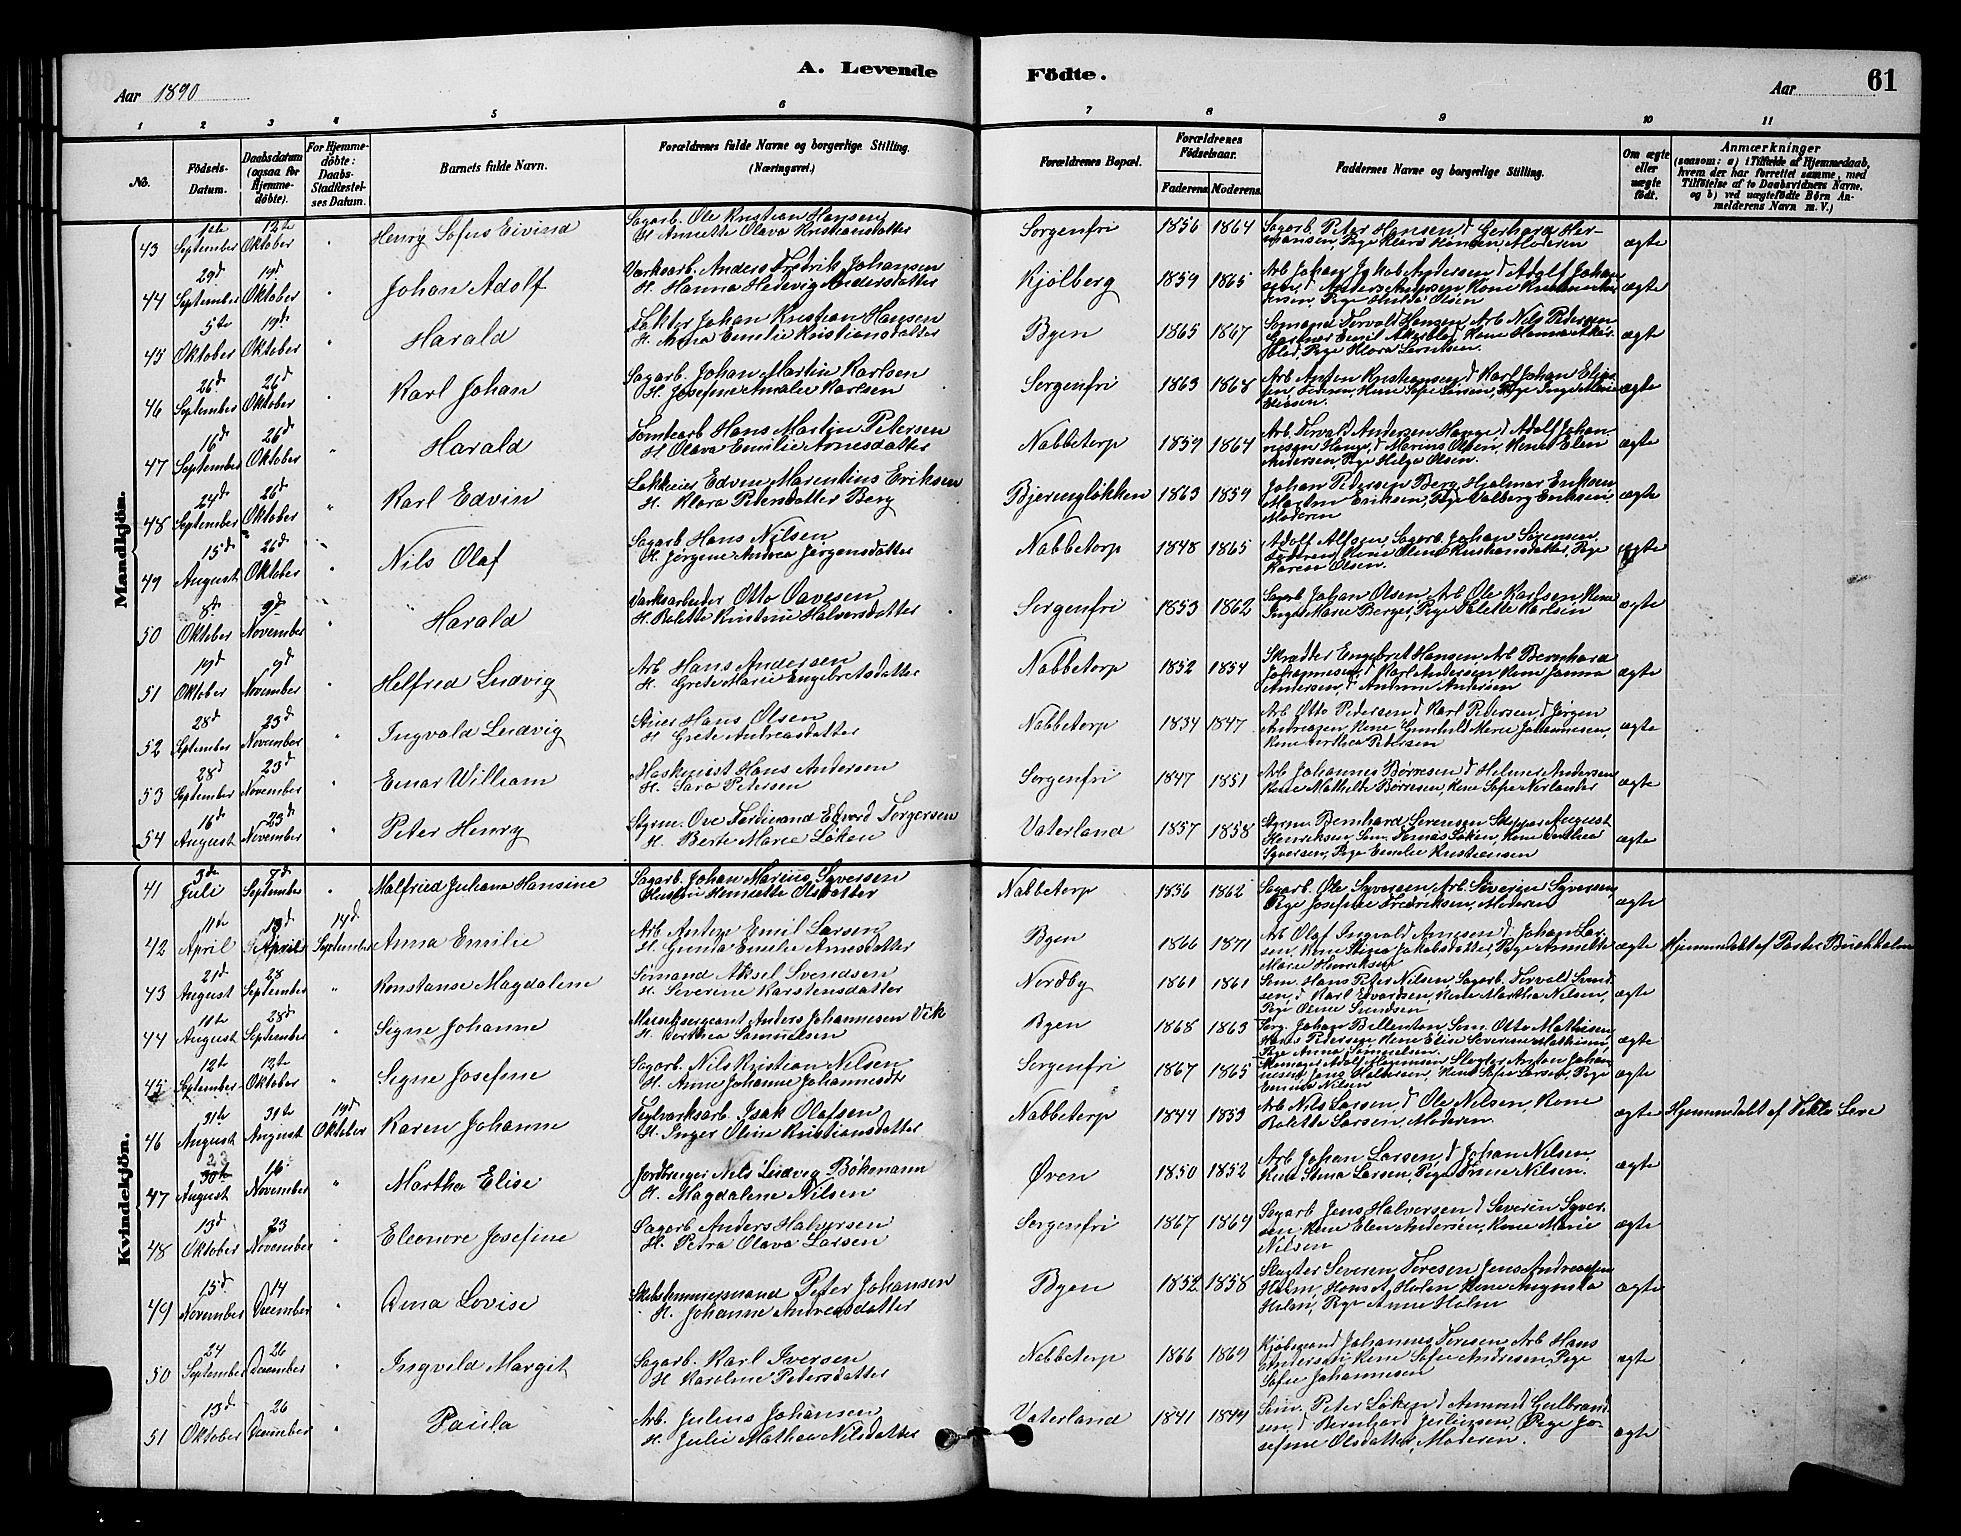 A. Levende Födte.
61
Aar 1890
Aar
1 2 3 4 5 6 7 8 9 10 11
No.
Födsels-Datum.
Daabsdatum (ogsaa for Hjemme-döbte).
For Hjemme-döbte: Daabs-Stadfæstel-ses Datum.
Barnets fulde Navn.
Forældrenes fulde Navne og borgerlige Stilling. (Næringsvei.)
Forældrenes Bopæl.
Forældrenes Födselsaar.
Faderens. Moderens.
Faddernes Navne og borgerlige Stilling.
Om ægte eller uægte födt.
Anmærkninger
(saasom: a) i Tilfælde af Hjemmedaab, hvem der har forrettet samme, med Tilföielse af to Daabsvidners Navne, og b) ved uægtefödte Börn An-melderens Navn m. V.)
Mandkjön.
43 11te September 12te Oktober " Henry Sofus Eivind
Sagarb. Ole Kristian Hansen
H. Annette Olava Kristiansdatter
Sorgenfri 1856 1864
Sagarb. Peter Hansen d Gerhard Her-
mansen, Pige Klara Hansen, Moderen
ægte
44 29d September 19d Oktober " Johan Adolf
Værksarb. Anders Fredrik Johansen
H. Hanna Hedevig Andersdatter
Kjölberg 1859 1865
Arb Johan Jakob Andersen d Adolf Johan
ægte
45 5te Oktober 19d Oktober " Harald
Johan Kristian Hansen
H. Anna Emilie Kristiansdatter
Byen 1865 1867
Sömand Torvald Hansen, Arb Nils Pedersen
ægte
46 26d September 26d Oktober " Karl Johan
Sagarb. Johan Martin Karlsen
H. Josefine Amalie Karlsen
Sorgenfri 1863 1868
Arb Anton Kristiansen d Karl Johan Elias
ægte
47 16d September 26d Oktober " Harald
Tomtearb Hans Martin Petersen
H Olava Emilie Arnesdatter
Nabbetorp 1859 1864
Arb. Torvald Andersen Hauge, d Adolf Johan-
nesen Hauge, d Marius Olsen, Kone Elen
Andersen, Pige Helga Olsen.
ægte
48 24d September 26d Oktober " Karl Edvin
Løkkeier Edvin Marentius Eriksen
H. Klara Petersdatter Berg
Bjerengløkken 1863 1859
Johan Pedersen Berg, Hjalmar Eriksen
Martin Eriksen, Pige Valborg Eriksen
Moderen
ægte
49 15d August 26d Oktober " Nils Olaf
Sagarb Hans Nilsen
H. Jørgine Andrea Jørgensdatter
Nabbetorp 1848 1865
Adolf Alfsen, Sagarb. Johan Sørensen,
Faderen, Kone Oline Kristiansdatter, Pige
Karen Olsen.
ægte
50 8d Oktober 9d November " Harald
Værksarbeider Otto Oavesen
H. Bolette Kristine Halvorsdatter
Sorgenfri 1853 1862
Sagarb Johan Olsen, Arb Ole Karlsen Kone
Inge Marie Berger, Pige Karlsen
ægte
51 19d Oktober 9d November " Helfred Ludvig
Arb Hans Andersen
H. Grete Marie Engebretsdatter
Nabbetorp 1852 1854
Skrædder Engebret Hansen, Arb Bernhard
Johannesen d Karl Andersen Kone Janna
Andersen, d Andersen
ægte
52 28d September 23d November " Ingvald Ludvig
Stuer Hans Olsen
H Grete Andreasdatter
Nabbetorp 1834 1847
Arb Otto Pedersen d Karl Pedersen, d Jørgen
Andreasen, Kone Gunhild Marie Johannesen,
Kone Petersen
ægte
53 28d September 23d November " Einar William
Maskinist Hans Andersen
H. Sara Petersen
Sorgenfri 1847 1851
Arb Johannes Børresen d Helmer Andersen
Kone Mathilde Børresen, Kone Sofie Norlander
ægte
54 16d August 23d November " Peter Henry
Styrm. Ove Ferdinand Edvard Torgersen
H. Berte Marie Løken
Vaterland 1857 1858
Styrm Bernhard Sørensen Skipper August
Henriksen, Søm Tomas Løken, Kone
Syversen, Pige Emelie Kristiansen
ægte
Kvindekjön.
41 3de Juli 7d September " Malfried Juliane Hansine
Sagarb. Johan Marius Syversen
Hustru Henriette Olsdatter
Nabbetorp 1856 1862
Sagarb. Ole Syversen Arb. Severin Syversen
Pige Josefine Fredriksen, Moderen
ægte
42 11te April 13d April 14d September Anna Emilie
Arb Anton Emil Larsen
H. Gunda Emelie Arnesdatter
Byen 1866 1871
Arb Olaf Ingvald Arnesen d Johan Lar-
sen, Kone Stina Jakobsdatter, Pige Annette
Marie Henriksen
ægte Hjemmedøbt af Pastor Buchholm
43 21d August 28 September " Konstanse Magdalene
Sömand Aksel Svendsen
H. Severine Karstensdatter
Nordby 1861 1861
Søm. Hans Peter Nilsen, Sagarb. Torvald Svend
sen, d Karl Edvardsen, Kone Martha Nilsen,
Pige Oline Svendsen
ægte
44 11te August 28d September " Signe Johanne
Anders Johannesen Vik
H. Dorthea Samuelsen
Byen 1868 1863
Serg. Johan Billenton Søm. Otto Mathisen,
Hans Pedersen Kone Elise Severine Mathisen,
Pige Anna Samuelsen
ægte
45 12te September 12te Oktober " Signe Josefine
Sagarb. Nils Kristian Nilsen
H. Anne Johanne Johannesdt
Sorgenfri 1867 1865
Adolf Hermansen, Slagter Anton Johan
ægte
46 31te August 31te August 19d Oktober Karen Johanne
Teglværksarb. Isak Olafsen
H. Inger Oline Kristiansdatter
Nabbetorp 1844 1853
Arb Nils Larsen, d Ole Nilsen, Kone
Bolette Larsen, Moderen.
ægte Hjemmedøbt af
47 23 30te August 16 November " Martha Elise
Jordbruger Nils Ludvig Bökmann
H. Magdalene Nilsen
Øren 1850 1852
Arb Johan Larsen, d Johan Nilsen,
Kone Stina Larsen, Pige Trine Nilsen.
ægte
48 13d Oktober 23 November " Eleonore Josefine
Sagarb Anders Halvorsen
H. Petra Olava Larsen
Sorgenfri 1867 1864
Sagarb Jens Halvorsen d Severin Syver-
sen, Kone Elen Andersen, Kone Marie
Nilsen
ægte
49 15d November 14 December " Anna Lovise
Skibstømmermand Peter Johansen
H. Johanne Andreasdatter
Byen 1852 1858
Slagter Søren Toresen Jens Andreassen
Holm, Holm Kone Augusta
Holm, Pige Anne Holm
ægte
50 24 September 26 December " Ingveld Margit
Sagarb. Karl Iversen
H Karoline Petersdatter
Nabbetorp 1866 1869
Kjöbmand Johannes Toresen, Arb Hans
Andersen Kone Sofie Andresen, Pige
Sofie Johannesen
ægte
51 13d Oktober 26 December " Paula
Arb. Julius Johansen
H. Julie Mathea Nilsdatter
Vaterland 1841 1849
Søm. Peter Løken d Amund Gulbrand
sen, d Bernhard Juliussen, Pige Jo-
sefine Olsdatter, Moderen.
ægte